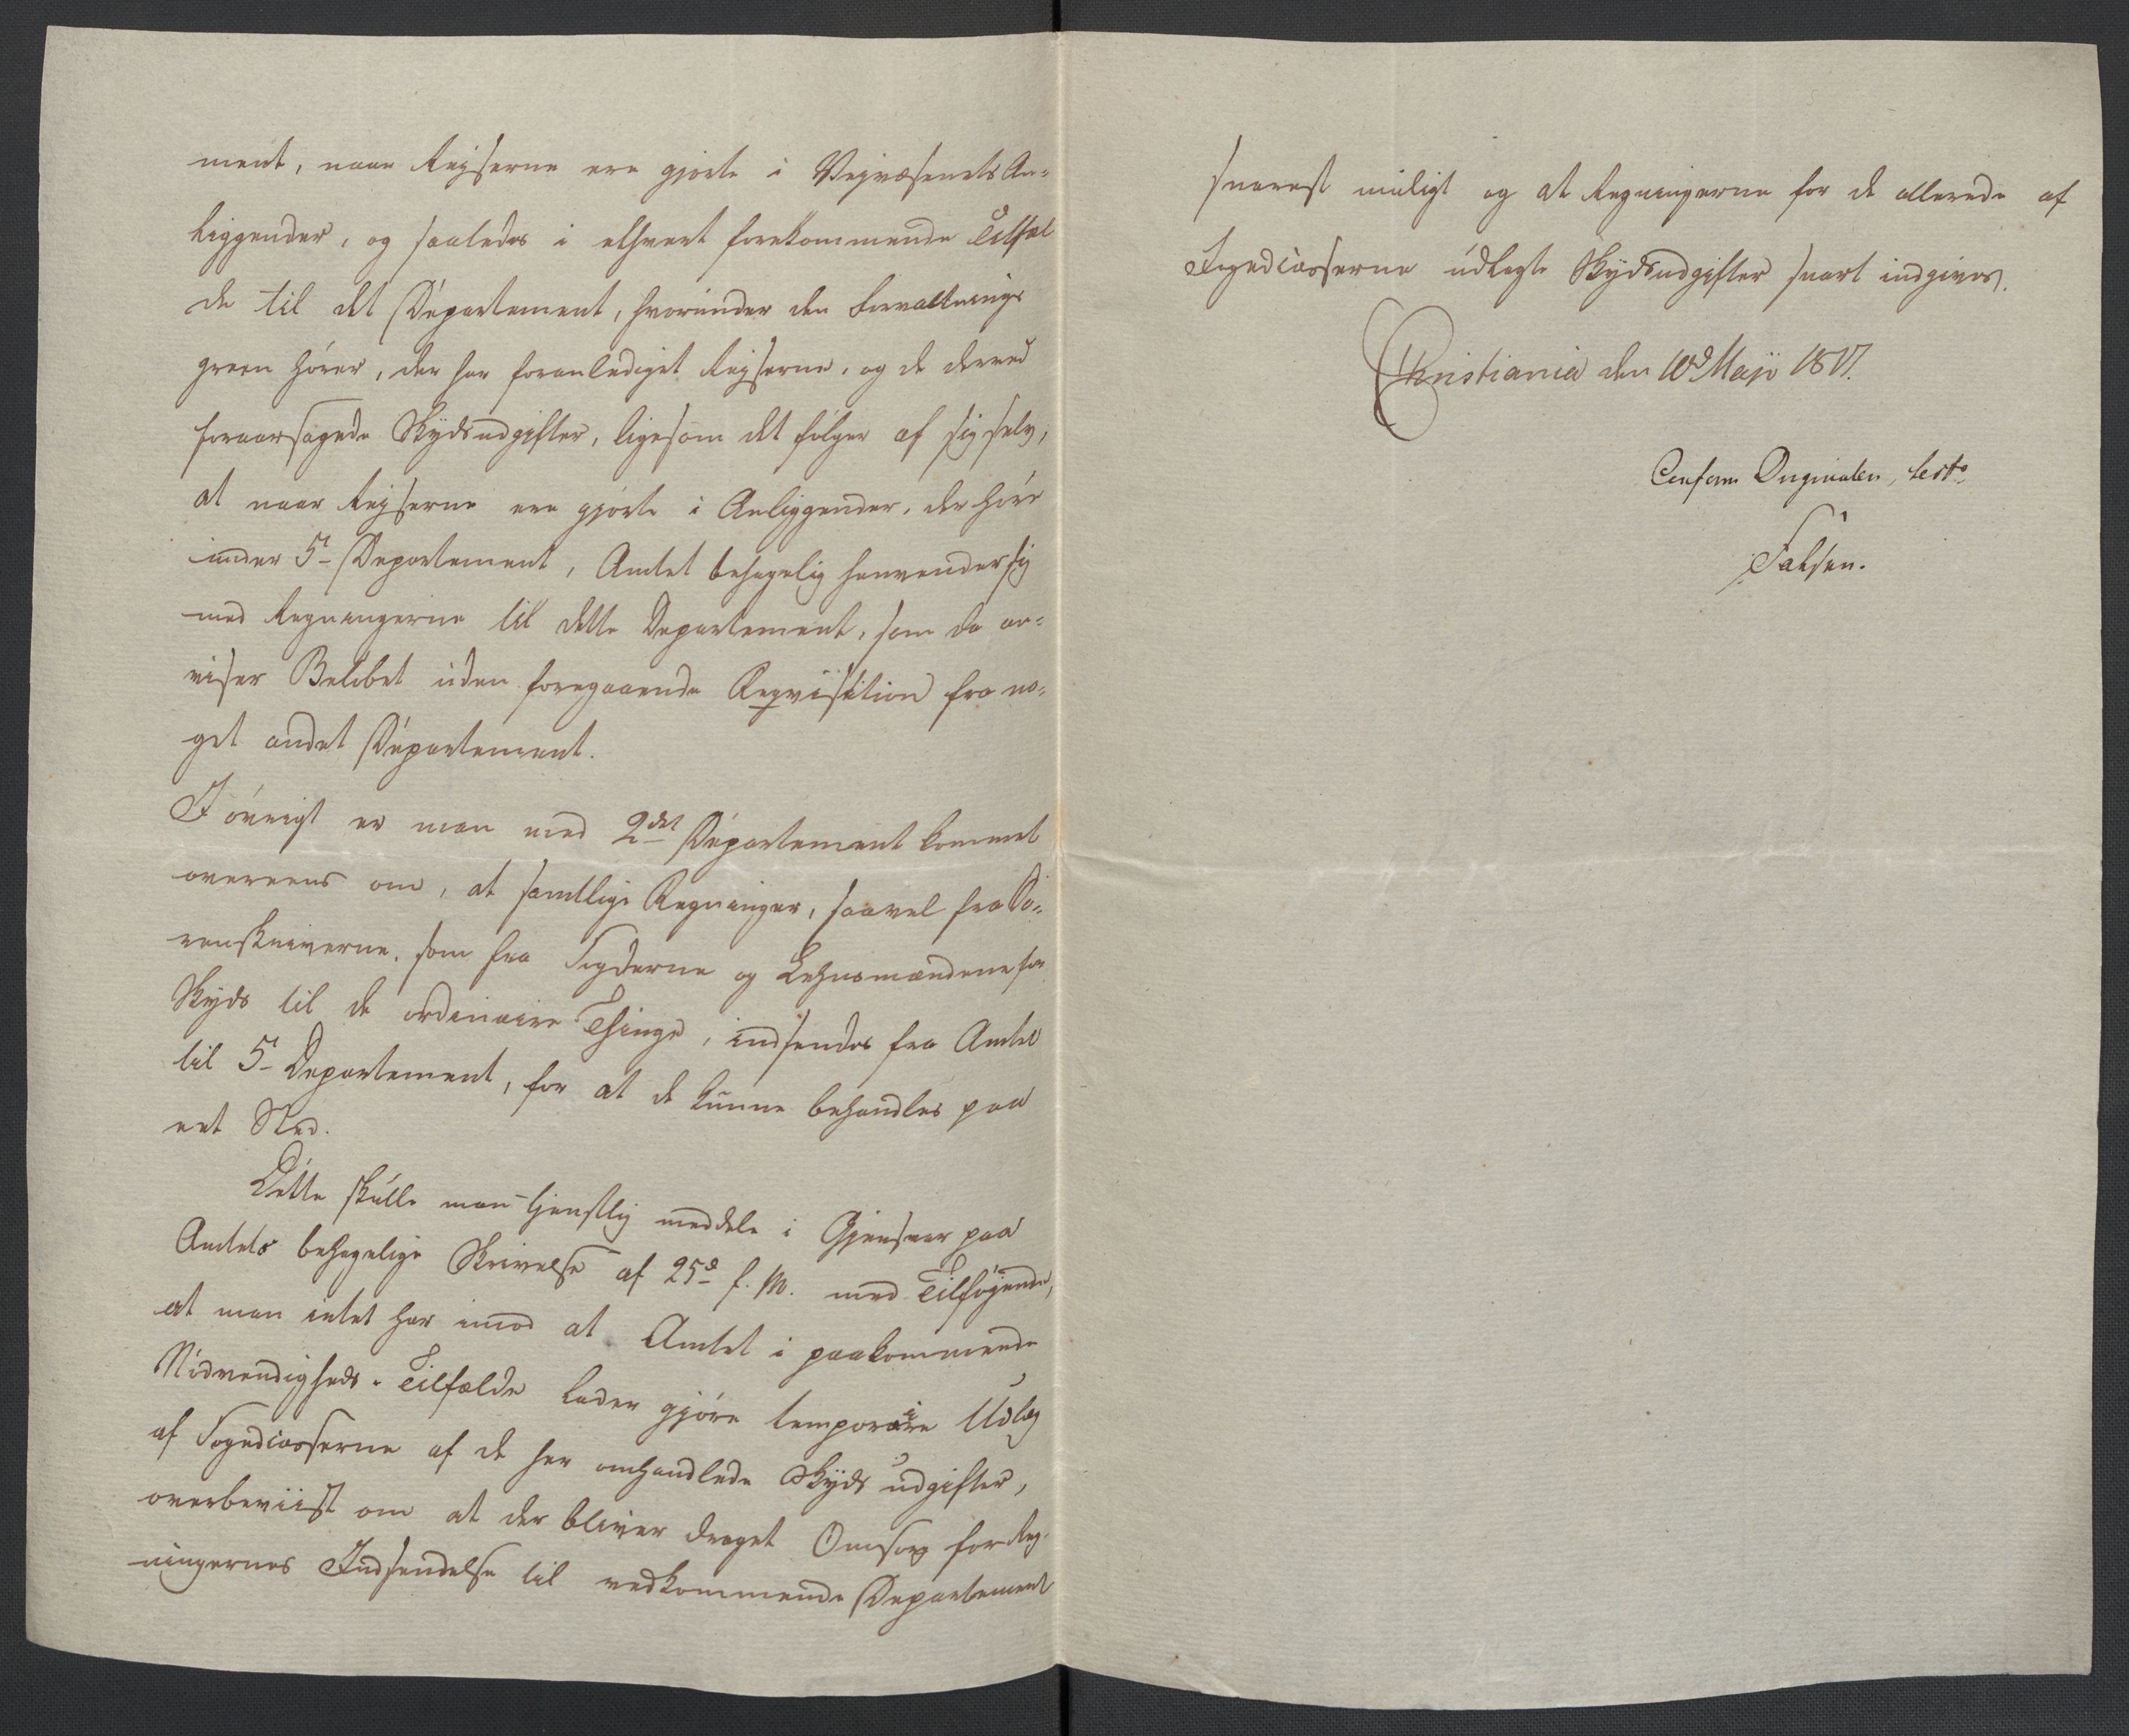 ment, naar Rejserne ere gjorte i Vejvæsenets An-
liggender, og saaledes i ethvert forekommende Tilfæl
de til det Departement, hvorunder den Forvaltnings
green hører, der har foranlediget Rejserne, og de derved
foraarsagede Skydsudgifter, ligesom det følger af sig selv,
at naar Rejserne ere gjorte i Anliggender, der høre
under 5t Departement, Amtet behagelig henvender sig
med Regningerne til dette Departement, som da an-
viser Beløbet uden foregaaende Reqvisition fra no-
get andet Departement.
I øvrigt er man med 2det Departement kommet
overeens om, at samtlige Regninger, saavel fra So-
renskriverne, som fra Fogderne og Lehnsmændene for
Skyds til de ordinaire Thinge, indsendes fra Amtet
til 5t Departement, for at de kunne behandles paa
eet Sted.
Dette skulle man tjenstlig meddele i Gjensvar paa
Amtets behagelige Skrivelse af 25d f. M. med Tilføjende,
at man intet har imod at Amtet i paakommende
Nødvendigheds-Tilfælde lader gjøre temporaire Udlæg
af Fogedcasserne af de her omhandlede Skydsudgifter,
overbeviist om at der bliver draget Omsorg for Reg-
ningernes Indsendelse til vedkommende Departement
snarest muligt og at Regningerne for de allerede af
Fogedcasserne udlagte Skydsudgifter snart indgives.
Christiania den 10d Maji 1817.
Conform Originalen, test:
Falsen.